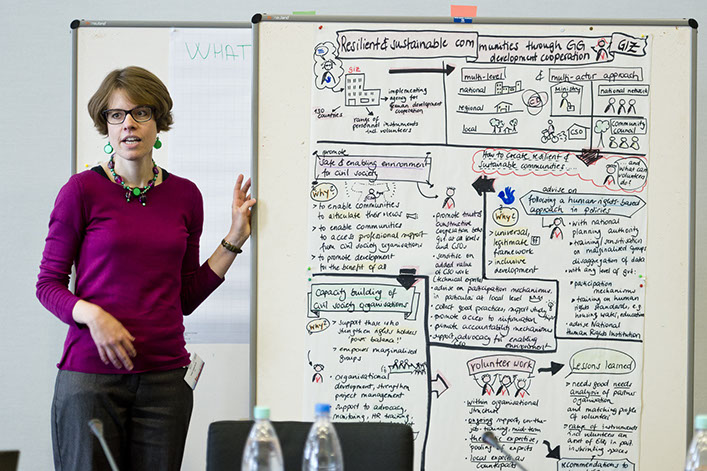 WHAT
Resilient & sustainable communities through GG
development cooperation
GIZ
GIZ
130 countries
implementing
agency for
german development
cooperation
range of
personnel instruments
incl. volunteers
multi-level
national
regional
local
& multi-actor approach
Ministry
CSO
national network
community
council
promote
Safe & enabling environment
for civil society
Why?
> to enable communities
to articulate their views
> to enable communities
to access professional support
from civil society organisations
> to promote development
to the benefit of all
• promote trust &
constructive
cooperation between
gvt at all levels
and CSOs
• sensitise on
added value
of CSO work
(technical expertise)
• advise on participation mechanisms,
in particular at local level
• collect good practices, support study
• promote access to information
• promote accountability mechanisms
• support advocacy for enabling
environment
How to create resilient &
sustainable communities ...
... and
what can
volunteers
do?
advise on
following a human-rights-based
approach in policies
Why?
> universal,
legitimate
framework
> inclusive
development
• with national
planning authority
• training/sensitisation
on marginalised groups
disaggregation of data
• with any level of gvt:
participation
mechanisms
• training on human
rights standards, e.g.
housing, water, education
• advise National
Human Rights Institution
Capacity building of
civil society organisations
Why?
> support those who
strengthen rights holders
"power balance!!"
> empowers marginalised
groups
• Organisational
development, strengthen
project management
• support to advocacy,
monitoring, HR training,
volunteer work
• within organisational
structure
• ongoing support, on-the-
job-training, mid-term
• thematic expertise,
pooling of experts
• local experts as
counterparts
Lessons learned
> needs good needs
analysis of partner
organisation
and matching profile of
volunteer
• range of instruments
incl. volunteers
in shrinking spaces
recommendations